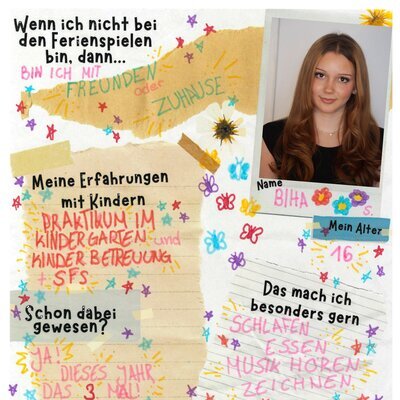 Wenn ich nicht bei
den Ferienspielen
bin, dann...
BIN ICH MIT
FREUNDEN
oder
ZUHAUSE
Name
BIHA
S.
Mein Alter
16
Meine Erfahrungen
mit Kindern
PRAKTIKUM IM
KINDERGARTEN und
KINDER BETREUUNG
+ SFS
Schon dabei
gewesen?
JA!
DIESES JAHR
DAS 3 MAL!
Das mach ich
besonders gern
SCHLAFEN
ESSEN
MUSIK HÖREN
ZEICHNEN